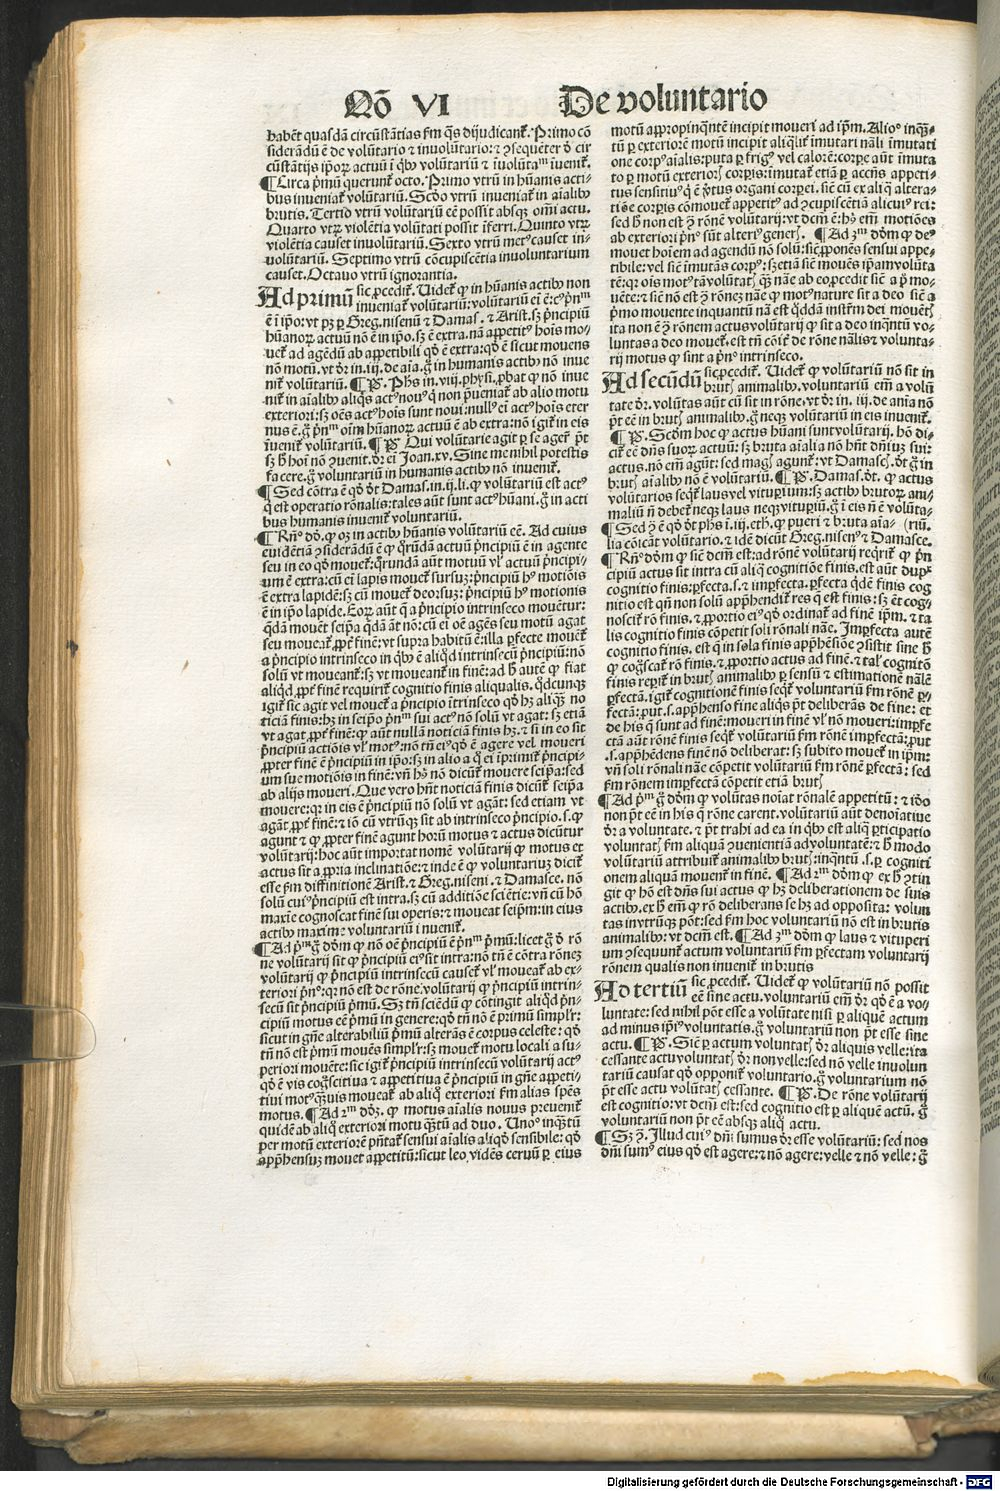 Qõ VI De voluntario
habẽt quasdã circũstãtias ſm q̃s dijudicant̃. Primo cõ
siderãdũ ẽ de volũtario ⁊ inuolũtario: ⁊ ꝯsequẽter ð cir
cũstãtijs ip̃oꝝ actuũ ĩ qͥbꝰ volũtariũ ⁊ ĩuolũtaᵐ ĩuenit̃.
¶Circa p̃mũ querunt̃ octo. Primo vtrũ in hũanis acti-
bus inueniat̃ volũtariũ. Scðo vtrũ inueniat̃ in aĩalibꝰ
brutis. Tertio vtrũ volũtariũ eẽ possit absqꝫ om̃i actu.
Quarto vtꝝ violẽtia volũtati possit ĩferri. Quinto vtꝝ
violẽtia causet inuolũtariũ. Sexto vtrũ metꝰ causet in-
uolũtariũ. Septimo vtrũ cõcupiscẽtia inuoluntarium
causet. Octauo vtrũ ignorantia.
Ad primũ sic ꝓcedit̃. Uidet̃ ꝙ in hũanis actibꝰ non
inueniat̃ voluntariũ: voluntariũ ei̇̃ ẽ: cꝰ p̃nᵐ
ẽ ĩ ip̃o: vt pꝫ ꝑ Greg. nisenũ ⁊ Damas. ⁊ Arist. sꝫ p̃ncipiũ
hũanoꝝ actuũ nõ ẽ in ip̃o. sꝫ ẽ extra. nã appetitꝰ hoĩs mo-
uet̃ ad agẽdũ ab appetibili qð ẽ extra: qð ẽ sicut mouens
nõ motũ. vt ðr in. iij. de aĩa. g̃ in humanis actibꝰ nõ inue
nit̃ volũtariũ. ¶P̃. Ph̃s in. viij. physi. ꝓbat ꝙ nõ inue
nit̃ in aĩalibꝰ aliqs actꝰ nouꝰ qui non p̃ueniat̃ ab alio motu
exteriori: sꝫ oẽs actꝰ hoĩs sunt noui: nullꝰ ei̇̃ actꝰ hoĩs eter
nus ẽ. g̃ p̃nᵐ oĩm hũanoꝝ actuũ ẽ ab extra: nõ igit̃ in eis
ĩuenit̃ volũtariũ. ¶P̃. Qui volũtarie agit ꝑ se agere p̃t
sꝫ h̃ hoĩ nõ ꝯuenit. ðr ei̇̃ Joan. xv. Sine me nihil potestis
facere. g̃ voluntariũ in humanis actibꝰ nõ inuenit̃.
¶Sed cõtra ẽ qð ðt Damas. in. ij. li. ꝙ volũtariũ est actꝰ
qͥ est operatio rõnalis: tales aũt sunt actꝰ hũani. g̃ in acti
bus humanis inuenit̃ voluntariũ.
¶Rñº ðõ. ꝙ oꝫ in actibꝰ hũanis volũtariũ eẽ. Ad cuius
euidẽtiã ꝯsiderãdũ ẽ ꝙ q̃rũdã actuũ p̃ncipiũ ẽ in agente
seu in eo qð mouet̃: q̃rundã aũt motuũ vĺ actuũ p̃ncipi-
um ẽ extra: cũ ei̇̃ lapis mouet̃ sursuꝫ: p̃ncipiũ hꝰ motiõis
ẽ extra lapidẽ: sꝫ cũ mouet̃ deorsuꝫ: p̃ncipiũ hꝰ motionis
ẽ in ip̃o lapide. Eoꝝ aũt q̃ a p̃ncipio intrinseco mouẽtur:
q̃dã mouẽt seip̃a q̃dã ãt nõ: cũ ei̇̃ oẽ agẽs seu motũ agat
seu mouet̃ ꝓpt̃ finẽ: vt supra habitũ ẽ: illa ꝑfecte mouẽt̃
a p̃ncipio intrinseco in qͥbꝰ ẽ aliqð intrinsecũ p̃ncipiũ: nõ
solũ vt moueant̃: sꝫ vt moueant̃ in finẽ: ad h̃ autẽ ꝙ fiat
aliqð ꝓpt̃ finẽ requirit̃ cognitio finis aliqualis. q̃dcunqꝫ
igit̃ sic agit vel mouet̃ a p̃ncipio ĩtrinseco qð hꝫ aliquã no
ticiã finis: hꝫ in seip̃o p̃nᵐ sui actꝰ nõ solũ vt agat: sꝫ etiã
vt agat ꝓpt̃ finẽ: q̃ aũt nullã noticiã finis hꝫ. ⁊ si in eo sit
p̃ncipiũ actiõis vĺ motꝰ: nõ tñ eiꝰ qð ẽ agere vel moueri
ꝓpter finẽ ẽ p̃ncipiũ in ip̃o: sꝫ in alio a q̃ ei ip̃rimit̃ p̃ncipi-
um sue motiõis in finẽ: vñ hꝰ nõ dicũt̃ mouere seip̃a: sed
ab alijs moueri. Que vero hñt noticiã finis dicũt̃ seip̃a
mouere: qꝛ in eis ẽ p̃ncipiũ nõ solũ vt agãt: sed etiam vt
agãt ꝓpt̃ finẽ: ⁊ iõ cũ vtrũqꝫ sit ab intrinseco p̃ncipio. s. ꝙ
agunt ⁊ ꝙ ꝓpter finẽ agunt horũ motus ⁊ actus dicũtur
volũtarij: hoc aũt importat nomẽ volũtarij ꝙ motus et
actus sit a ꝓpria inclinatiõe: ⁊ inde ẽ ꝙ voluntariuꝫ dicit̃
esse ſm diffinitionẽ Arist. ⁊ Greg. niseni. ⁊ Damasce. nõ
solũ cuiꝰ p̃ncipiũ est intra. sꝫ cũ additiõe sciẽtie: vñ cũ hõ
maxĩe cognoscat finẽ sui operis: ⁊ moueat seip̃m: in eius
actibꝰ maxime voluntariũ ĩnuenit̃.
¶Ad p̃ᵐ g̃ ðõm ꝙ nõ oẽ p̃ncipiũ ẽ p̃nᵐ p̃mũ: licet g̃ ð rõ
ne volũtarij sit ꝙ p̃ncipiũ eiꝰ sit intra: nõ tñ ẽ cõtra rõneꝫ
volũtarij ꝙ p̃ncipiũ intrinsecũ causet̃ vĺ moueat̃ ab ex-
teriori p̃nº: qꝛ nõ est de rõne. volũtarij ꝙ p̃ncipiũ intrin-
secũ sit p̃ncipiũ p̃mũ. Sꝫ tñ sciẽdũ ꝙ cõtingit aliqð p̃n-
cipiũ motus eẽ p̃mũ in genere: qð tñ nõ ẽ primũ simplr̃:
sicut in gñe alterabiliũ p̃mũ alterãs ẽ corpus celeste: qð
tñ nõ est p̃mũ mouẽs simplr̃: sꝫ mouet̃ motu locali a su-
periori mouẽte: sic igit̃ p̃ncipiũ intrinsecũ volũtarij actꝰ
qð ẽ vis cog̃scitiua ⁊ appetitiua ẽ p̃ncipiũ in gñe appeti-
tiui motꝰ qᷓuis moueat̃ ab aliq̃ exteriori ſm alias sp̃es
motus. ¶Ad 2ᵐ ðõꝫ. ꝙ motus aĩalis nouus preuenit̃
quidẽ ab aliq̃ exteriori motu q̃ꝫtũ ad duo. Unoº inq̃ꝫtũ
per motũ exteriorẽ p̃ntat̃ sensui aĩalis aliqð sensibile: qð
app̃hensuꝫ mouet appetitũ: sicut leo vidẽs ceruũ ꝑ eius
motũ appropinq̃ntẽ incipit moueri ad ip̃m. Alioº inq̃ꝫ-
tũ ꝑ exteriorẽ motũ incipit aliq̃lit̃ imutari nãli ĩmutati
one corpꝰ aĩalis: puta ꝑ frigꝰ vel calorẽ: corꝑe aũt ĩmuta
to ꝑ motũ exterioris corꝑis: ĩmutat̃ etiã ꝑ accñs appeti-
tus sensitiuꝰ q̃ ẽ ṽtus organi corꝑei. sic̃ cũ ex aliq̃ altera-
tiõe corꝑis cõmouet̃ appetitꝰ ad ꝯcupiscẽtiã alicuiꝰ rei:
sed h̃ non est ꝯ̃ rõnẽ volũtarij: vt dcm̃ ẽ: hꝰ em̃ motiões
ab exteriori p̃nº sũt alteriꝰ generis. ¶Ad 3ᵐ ðõm ꝙ deꝰ
mouet hoĩem ad agendũ nõ solũ: sic̃ ꝓponẽs sensui appe-
tibile: vel sic̃ ĩmutãs corpꝰ: sꝫ etiã sic̃ mouẽs ip̃am volũta
tẽ: qꝛ oĩs motꝰ tã volũtatis qᷓꝫ nãe ab eo ꝓcedit sic̃ a p̃º mo-
uẽte: ⁊ sic̃ nõ est ꝯ̃ rõneꝫ nãe ꝙ motꝰ nature sit a deo sic̃ a
p̃mo mouente inquantũ nã est q̃ddã instr̃m dei mouẽtis
ita non ẽ ꝯ̃ rõnem actus volũtarij ꝙ sit a deo inq̃ntũ vo-
luntas a deo mouet̃. est tñ cõit̃ de rõne nãlis ⁊ volunta-
rij motus ꝙ sint a p̃nº intrinseco.
Ad secũdũ sic ꝓcedit̃. Uidet̃ ꝙ volũtariũ nõ sit in
brutis animalibꝰ. voluntariũ em̃ a volũ
tate ðr. volũtas aũt cũ sit in rõne. vt ðr in. iij. de aĩa nõ
p̃t eẽ in brutis animalibꝰ. g̃ neqꝫ volũtariũ in eis inuenit̃.
¶P̃. Scðm hoc ꝙ actus hũani sunt volũtarij. hõ di-
cit̃ eẽ dñs suoꝝ actuũ: sꝫ bruta aĩalia nõ hñt dñiuꝫ sui:
actus. nõ em̃ agũt: sed magis agunt̃: vt Damasc̃. ðt. g̃ in
brutis aĩalibꝰ nõ est volũtariũ. ¶P̃. Damas. ðt. ꝙ actus
volũtarios seqt̃ laus vel vitupiũm: sꝫ actibꝰ brutoꝝ ani-
maliũ ñ debet̃ neqꝫ laus neqꝫ vitupiũ. g̃ ĩ eis ñ ẽ volũta-
¶Sed ꝯ̃ ẽ qð ðt ph̃s ĩ. iij. eth. ꝙ pueri ⁊ bruta aĩa- (riũ.
lia cõicãt volũtario. ⁊ idẽ dicũt Greg. nisenꝰ ⁊ Damasce.
¶Rñº ðõm ꝙ sic̃ dcm̃ est: ad rõnẽ volũtarij reqrit̃ ꝙ p̃n
cipiũ actus sit intra cũ aliq̃ cognitiõe finis. est aũt dupꝯ
cognitio finis: ꝑfecta. s. ⁊ imꝑfecta. ꝑfecta q̃dẽ finis cog
nitio est qñ non solũ app̃hendit̃ res q̃ est finis: sꝫ ẽt cog-
noscit̃ rõ finis. ⁊ ꝓportio eiꝰ qð ordinat̃ ad finẽ ip̃m. ⁊ ta
lis cognitio finis cõpetit soli rõnali nãe. Imꝑfecta autẽ
cognitio finis. est q̃ in sola finis app̃hẽsiõe ꝯsistit sine h̃
ꝙ cog̃scat̃ rõ finis. ⁊ ꝓportio actus ad finẽ. ⁊ talis cognitio
finis reꝑit̃ in brutis animalibꝰ ꝑ sensũ ⁊ estimationẽ nãlẽ
ꝑfectã. igit̃ cognitionẽ finis seqt̃ voluntariũ ſm rõnẽ ꝑ-
fectã: put. s. app̃henso fine aliqs p̃t deliberãs de fine: et
de his q̃ sunt ad finẽ: moueri in finẽ vĺ nõ moueri: imꝑfe
ctã aũt rõnẽ finis seqt̃ volũtariũ ſm rõnẽ imꝑfectã: ꝓut
. s. app̃hẽdens finẽ nõ deliberat: sꝫ subito mouet̃ in ip̃m:
vñ soli rõnali nãe cõpetit voluntariũ ſm rõnẽ ꝑfectã: sed
ſm rõnem imꝑfectã cõpetit etiã brutis
¶Ad p̃ᵐ g̃ ðõm ꝙ volũtas noĩat rõnalẽ appetitũ: ⁊ iðo
non p̃t eẽ in his q̃ rõne carent. volũtariũ aũt denoĩatiue
ðr a voluntate. ⁊ p̃t trahi ad ea in qͥbꝰ est aliq̃ ꝑticipatio
voluntatis ſm aliquã ꝯuenientiã ad voluntatẽ: ⁊ h̃ modo
volũtariũ attribuit̃ animalibꝰ brutis: inq̃ntũ. s. ꝑ cogniti
onem aliquã mouent̃ in finẽ. ¶Ad 2ᵐ ðõm ꝙ ex h̃ ꝯtin
git ꝙ hõ est dñs sui actus ꝙ hꝫ deliberationem de suis
actibꝰ. ex h̃ em̃ ꝙ rõ deliberans se hꝫ ad opposita: volun
tas ĩ vtrũqꝫ põt: sed ſm hoc voluntariũ nõ est in brutis
animalibꝰ: vt dcm̃ est. ¶Ad 3ᵐ ðõm ꝙ laus ⁊ vituperi
um ꝯsequunt̃ actum voluntariũ ſm ꝑfectam voluntarij
rõnem qualis non inuenit̃ in brutis
Ad tertiũ sic ꝓcedit̃. Uidet̃ ꝙ volũtariũ nõ possit
eẽ sine actu. voluntariũ em̃ ðr qð ẽ a vo-
luntate: sed nihil põt esse a volũtate nisi ꝑ aliquẽ actum
ad minus ip̃iꝰ voluntatis. g̃ voluntariũ non p̃t esse sine
actu. ¶P̃. Sic̃ ꝑ actum voluntatis ðr aliquis velle: ita
cessante actu voluntatis ðr non velle: sed nõ velle inuolun
tariũ causat qð opponit̃ voluntario. g̃ voluntarium nõ
p̃t esse actu volũtatis cessante. ¶P̃. De rõne volũtarij
est cognitio: vt dcm̃ est: sed cognitio est ꝑ aliquẽ actũ. g̃
voluntariũ non p̃t eẽ absqꝫ aliq̃ actu.
¶Sꝫ ꝯ̃. Illud cuiꝰ dñi sumus ðr esse volũtariũ: sed nos
dñi sumꝰ eius qð est agere: ⁊ nõ agere: velle ⁊ nõ velle: g̃
Digitalisierung gefördert durch die Deutsche Forschungsgemeinschaft - DFG